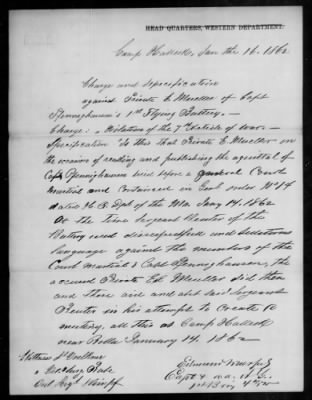 HEAD QUARTERS, WESTERN DEPARTMENT.
Camp Halleck, Jan the 16. 1862
Charge and specification
against Private E Mueller of Capt
Pfenninghausen's 1st Flying Battery. -
Charge: Violation of the 7th Article of War. -
Specification In this that Private E. Mueller on
the occasion of reading and publishing the acquittal of
Capt Pfenninghausen tried before a general Court
Martial and Contained in Genl order No 14
dated H. Q. Dpt of the Mo Jany 14. 1862
At the time Sergeant Reuter of the
Battery used disrespectful and seditious
language against the members of the
Court martial & Capt Pfenninghausen, the
accused Private Ed Mueller did then
and there aid and abet said Sergeant
Reuter in his attempt to Create a
mutiny, all this at Camp Halleck
near Rolla January 14. 1862
Witness
Capt &